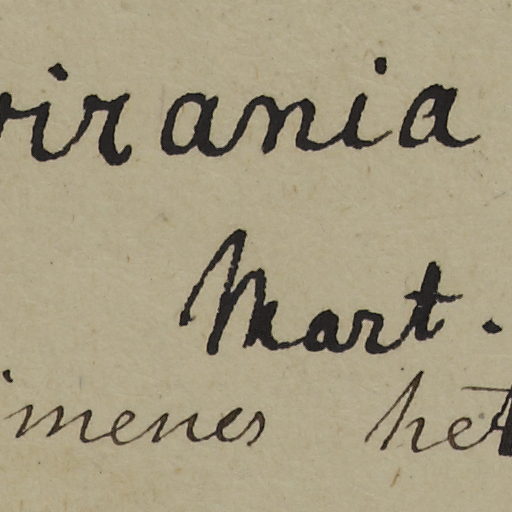 virania
Mart.
imenes het